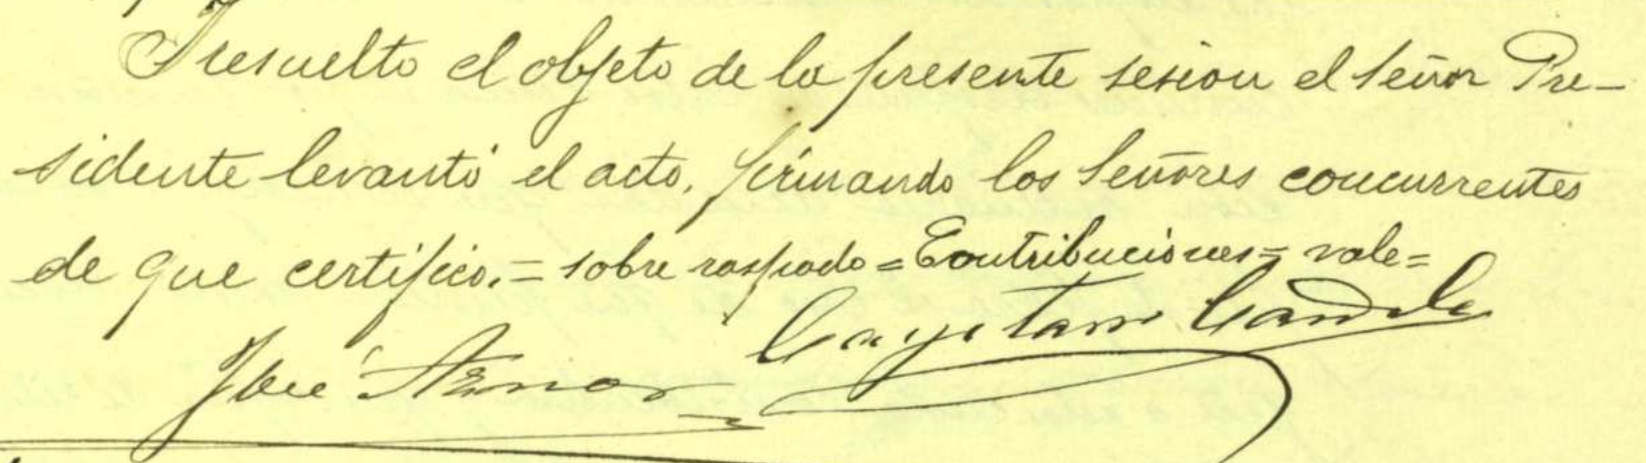 Y resuelto el objeto de la presente sesion el Señor Pre-
sidente levantó el acto, firmando los Señores concurrentes
de que certifico. = sobre raspado = Contribuciones = vale =
Cayetano Candela
José Aznar